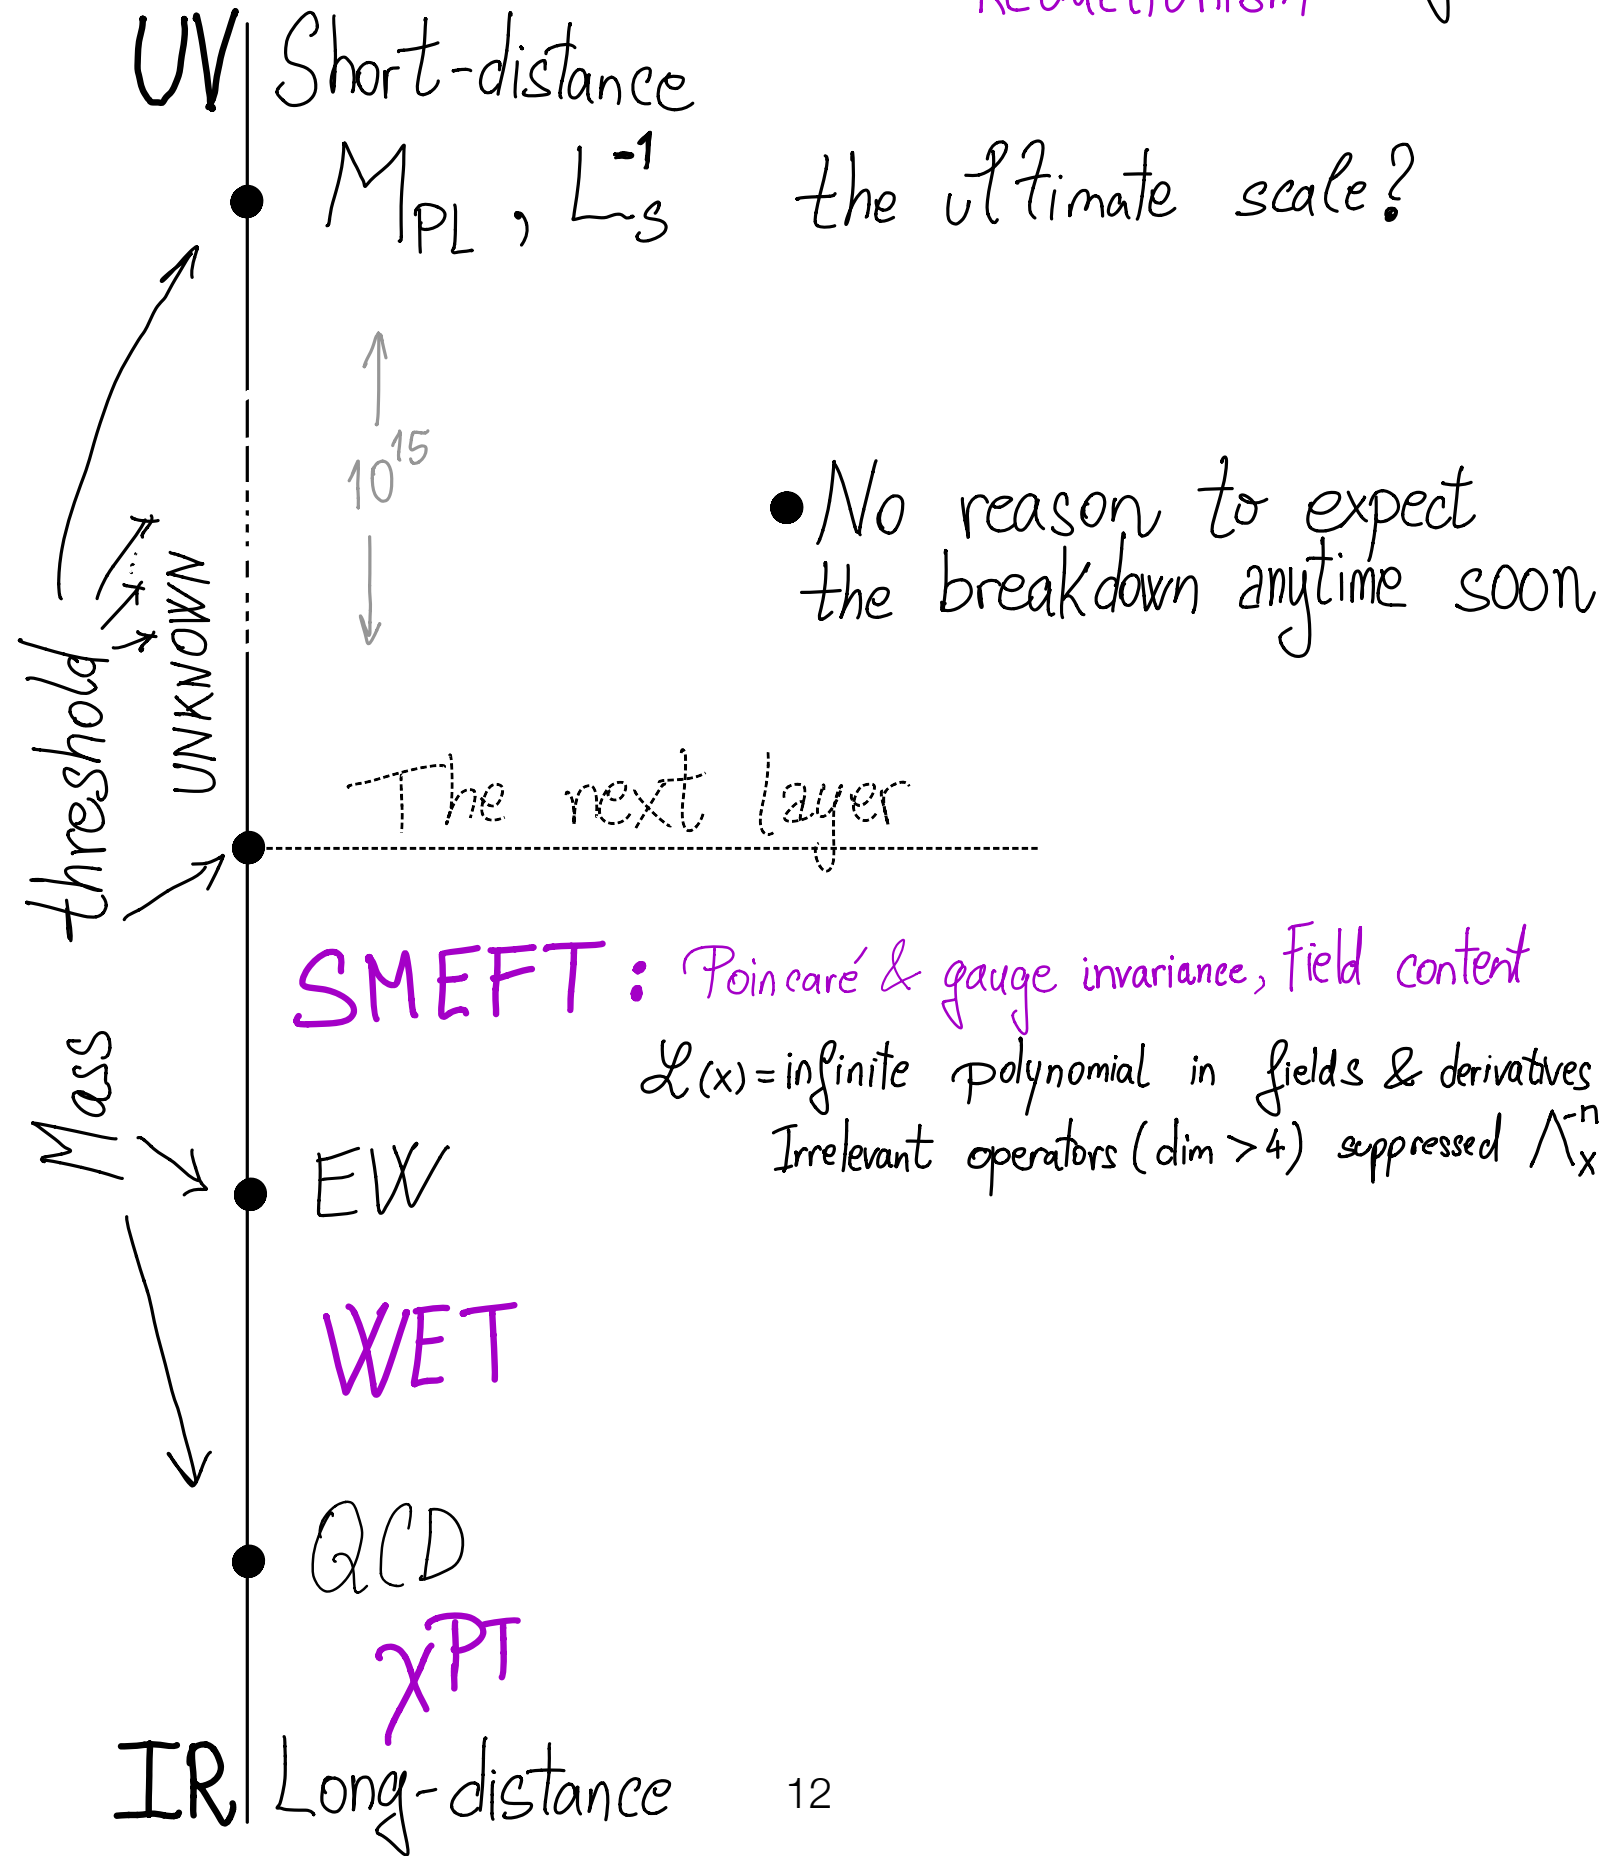 Reductionism
UV Short-distance
M_PL , L_s^-1 the ultimate scale?
10^15
• No reason to expect
the breakdown anytime soon
UNKNOWN
threshold
The next layer
SMEFT: Poincaré & gauge invariance, Field content
ℒ(x) = infinite polynomial in fields & derivatives
Irrelevant operators (dim > 4) suppressed Λ_x^-n
Mass
EW
WET
QCD
χPT
IR Long-distance
12